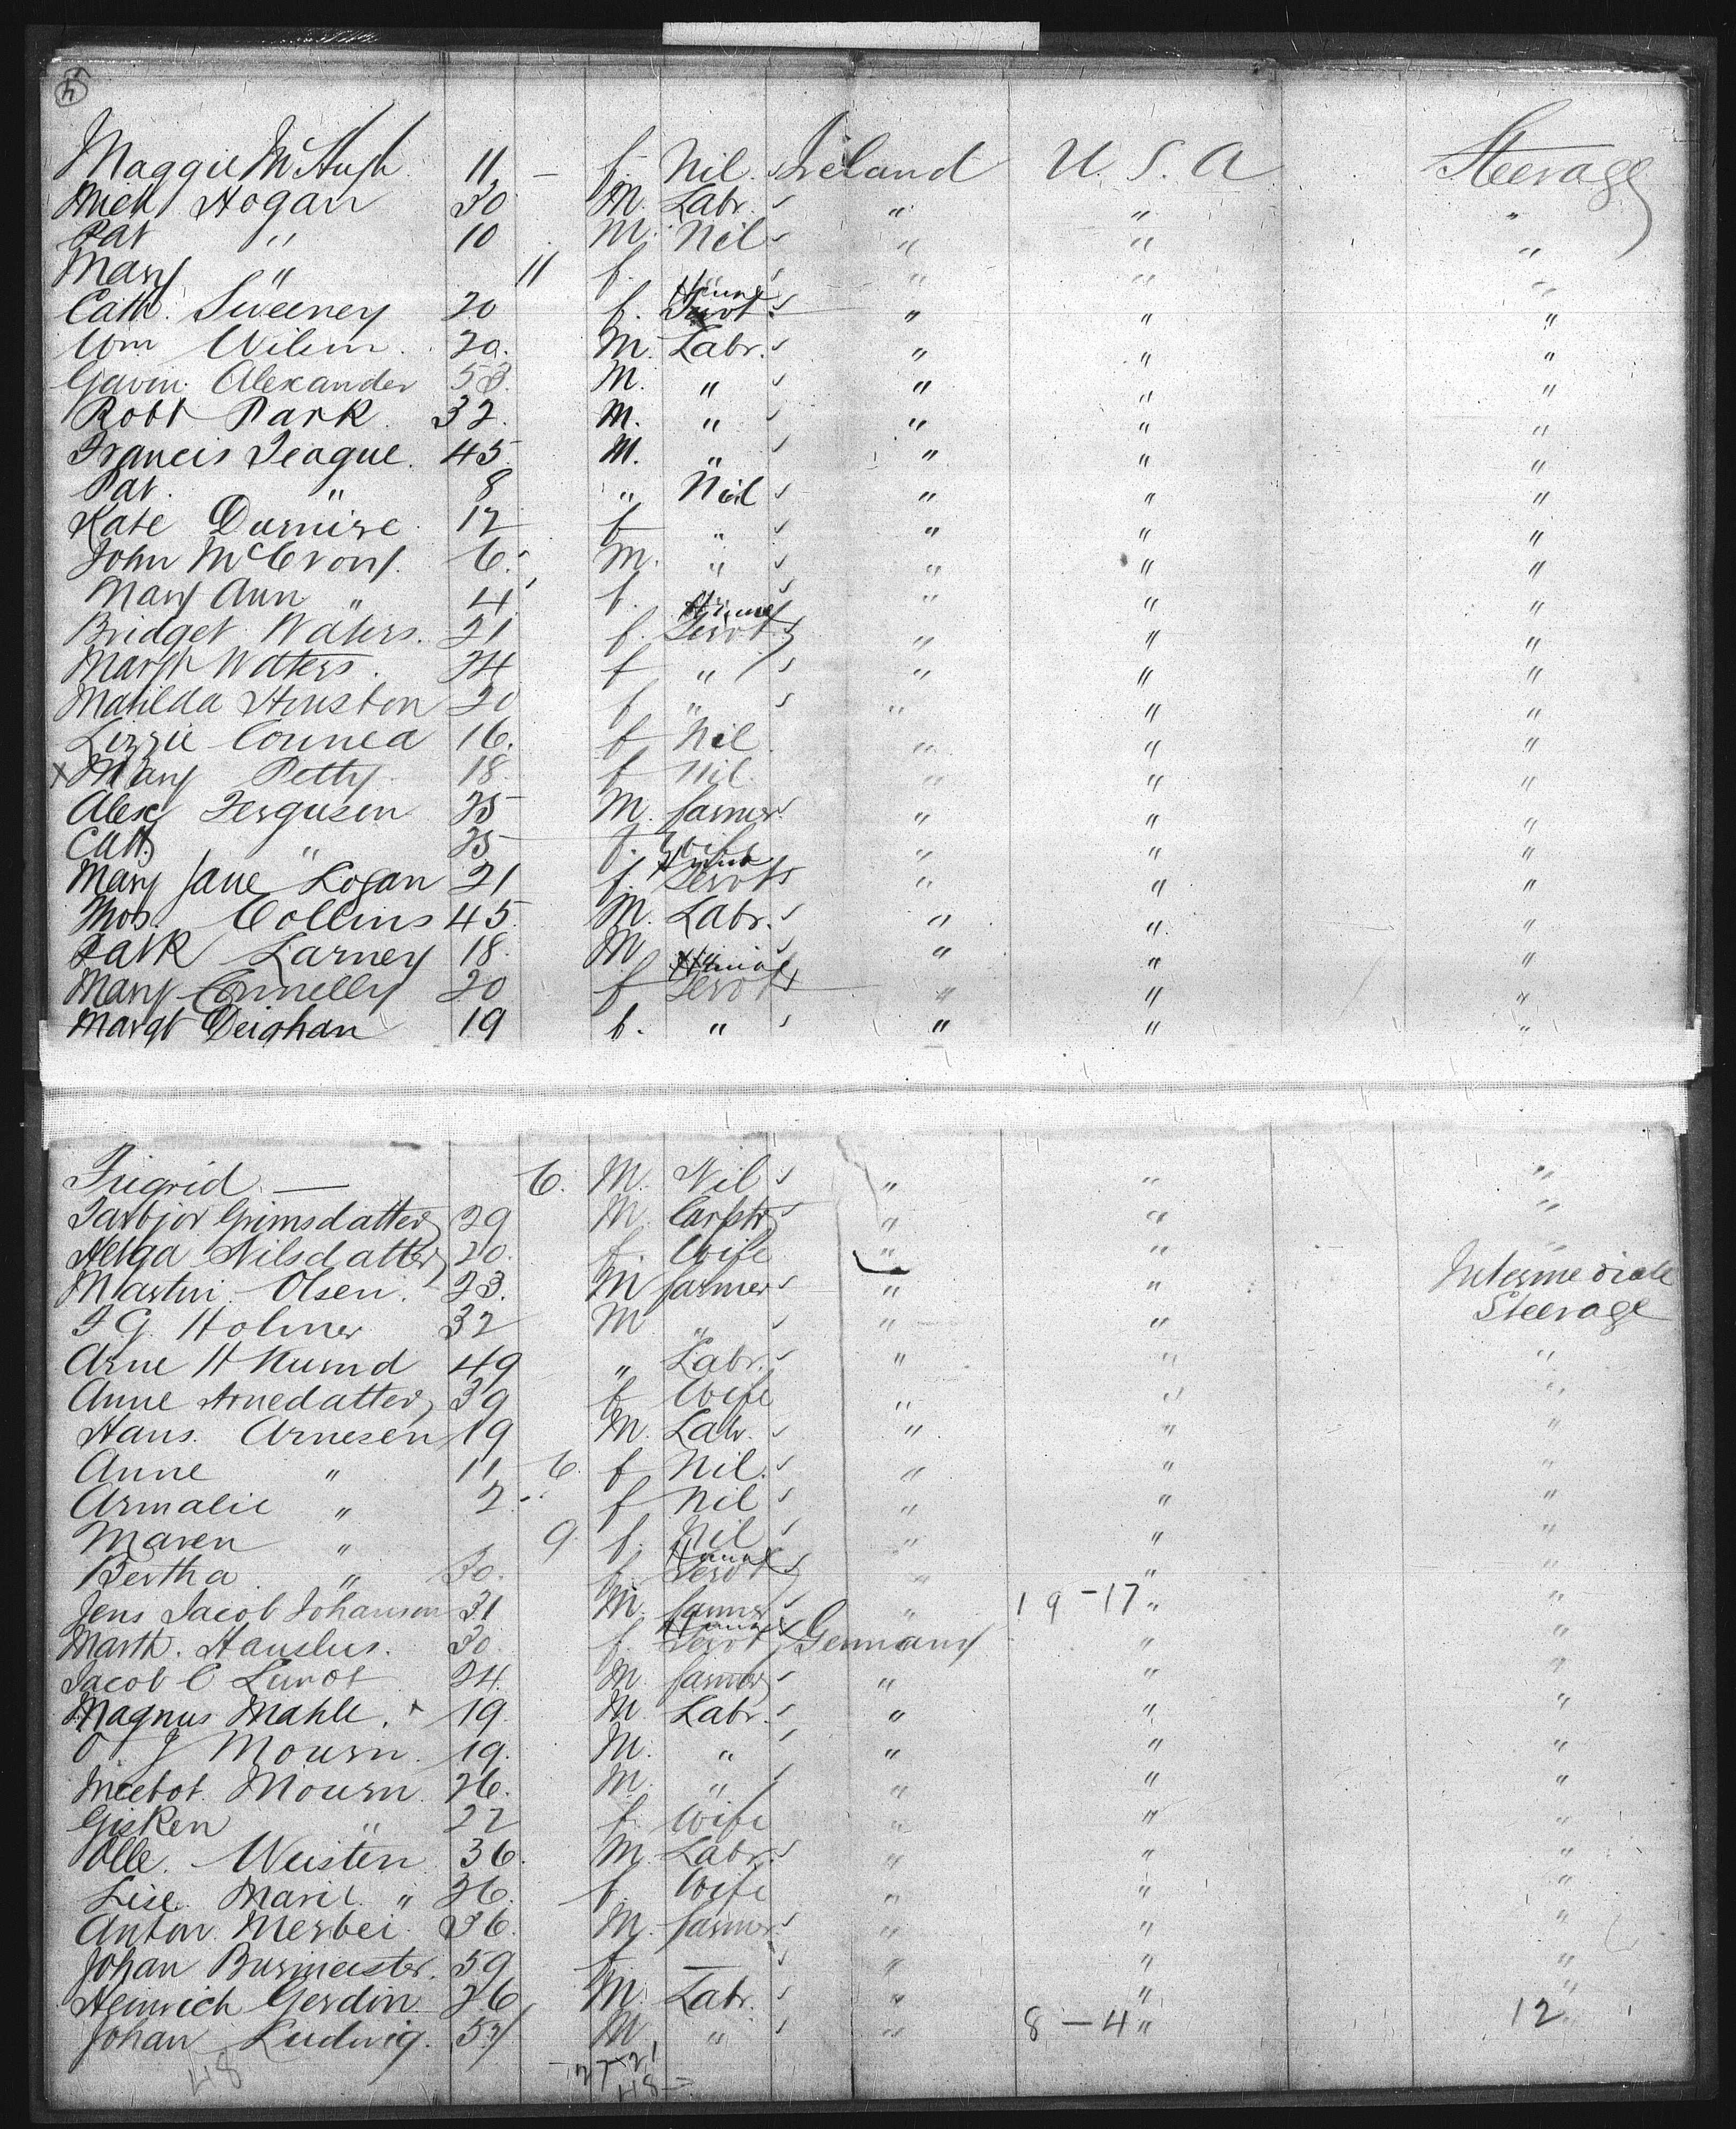 4
Maggie McHugh 11 – f. Nil. s Ireland U.S.A Steerage
Mich Hogan 30 M. Labr. s " " "
Pat " 10 M. Nil s " " "
Mary " 11 f. " s " " "
Cath. Sweeney 20 f. Servt. s " " "
Wm Wilson 20. M. Labr. s " " "
Gavin Alexander 53. M. " s " " "
Robt Park 32. M. " s " " "
Francis Teague 45 M. " s " " "
Pat. " 8 " Nil s " " "
Kate 12 f " s " " "
John McEvony. 6. M. " s " " "
Mary Ann " 4 f. " s " " "
Bridget Waters. 21 f. Servt s " " "
Margt Waters. 24 f " s " " "
Matilda Houston 20 f " s " " "
Lizzie 16. f Nil " " "
x Mary Petty 18 f Nil " " "
Alex Ferguson 25 M. farmer s " " "
Cath " 25 f. Wife " " "
Mary Jane Logan 21 f. Servt s " " "
Thos. Collins 45 M. Labr. s " " "
Patk Larney 18. M " s " " "
Mary Connelly 20 f Servt s " " "
Margt Deighan 19 f. " s " " "
Ingrid — 6. M. Nil s " " "
Tarbjor Grimsdatter 29 M. Carptr s " " "
Helga Nilsdatter 20. f. Wife " " "
Martin Olsen. 23. M farmer s " " Intermediate
Holmer 32 M " s " " Steerage
Arne H Kumd 49 " Labr. s " " "
Anne Arnedatter 39 f Wife " " "
Hans. Arnesen 19 M. Labr. s " " "
Anne " 11 6. f Nil. s " " "
Armalie " 2 f Nil s " " "
Maren " 9 f. Nil s " " "
Bertha " 30. f. Servt s " " "
Jens Jacob Johansen 31 M. farmer s " 19–17 " "
Marth. Hauslus. 30 f. Servt s Germany " "
Jacob C Lundt 24. M farmer s " " "
Magnus Mahle. 19 M Labr. s " " "
O J Mourn. 19. M. " s " " "
Mourn. 26. M. " s " " "
Gisken " 22 f. Wife " " "
Olle. Weisten 36. M. Labr. s " " "
Lise Marie " 26. f. Wife " " "
Anton Merbei 36. M. farmer s " " "
Johan Burmeister. 59 f — s " " "
Heinrich Gerdin 26 M. Labr. s " " "
Johan Ludwig. 57 M " s " 8–4 " 12
48 27–21
48